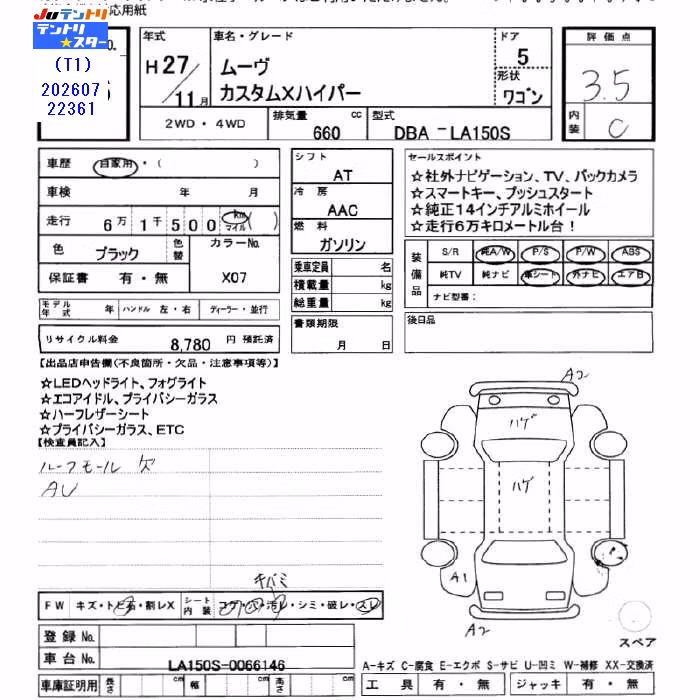 応用紙
JUテントリ
テントリ★スター
(T1)
202607
22361
年式 車名・グレード ドア 評価点
H27/11月 ムーヴ 5 3.5
カスタムXハイパー 形状 ワゴン 内装 C
2WD・4WD 排気量 660 cc 型式 DBA-LA150S
車歴 自家用・( )
車検 年 月
走行 6万1千500 km マイル ( )
色 ブラック 色替 カラーNo.
保証書 有・無 X07
モデル年式 年 ハンドル 左・右 ディーラー・並行
リサイクル料金 8,780 円 預託済
シフト AT
冷房 AAC
燃料 ガソリン
乗車定員 名
積載量 kg
総重量 kg
書類期限
月 日
セールスポイント
☆社外ナビゲーション、TV、バックカメラ
☆スマートキー、プッシュスタート
☆純正14インチアルミホイール
☆走行6万キロメートル台!
装備品 S/R 純A/W P/S P/W ABS
純TV 純ナビ 革シート 外ナビ エアB
ナビ型番:
後日品
【出品店申告欄(不良箇所・欠品・注意事項等)】
☆LEDヘッドライト、フォグライト
☆エコアイドル、プライバシーガラス
☆ハーフレザーシート
☆プライバシーガラス、ETC
【検査員記入】
ルーフモール欠
AU
A2
ハゲ
ハゲ
A1
A2
スペア
キバミ
FW キズ・トビ石・割レX シート内装 コゲ・穴・汚レ・シミ・破レ・スレ
登録No.
車台No. LA150S-0066146
車庫証明用 長さ cm 幅 cm 高さ cm
A-キズ C-腐食 E-エクボ S-サビ U-凹ミ W-補修 XX-交換済
工具 有・無 ジャッキ 有・無